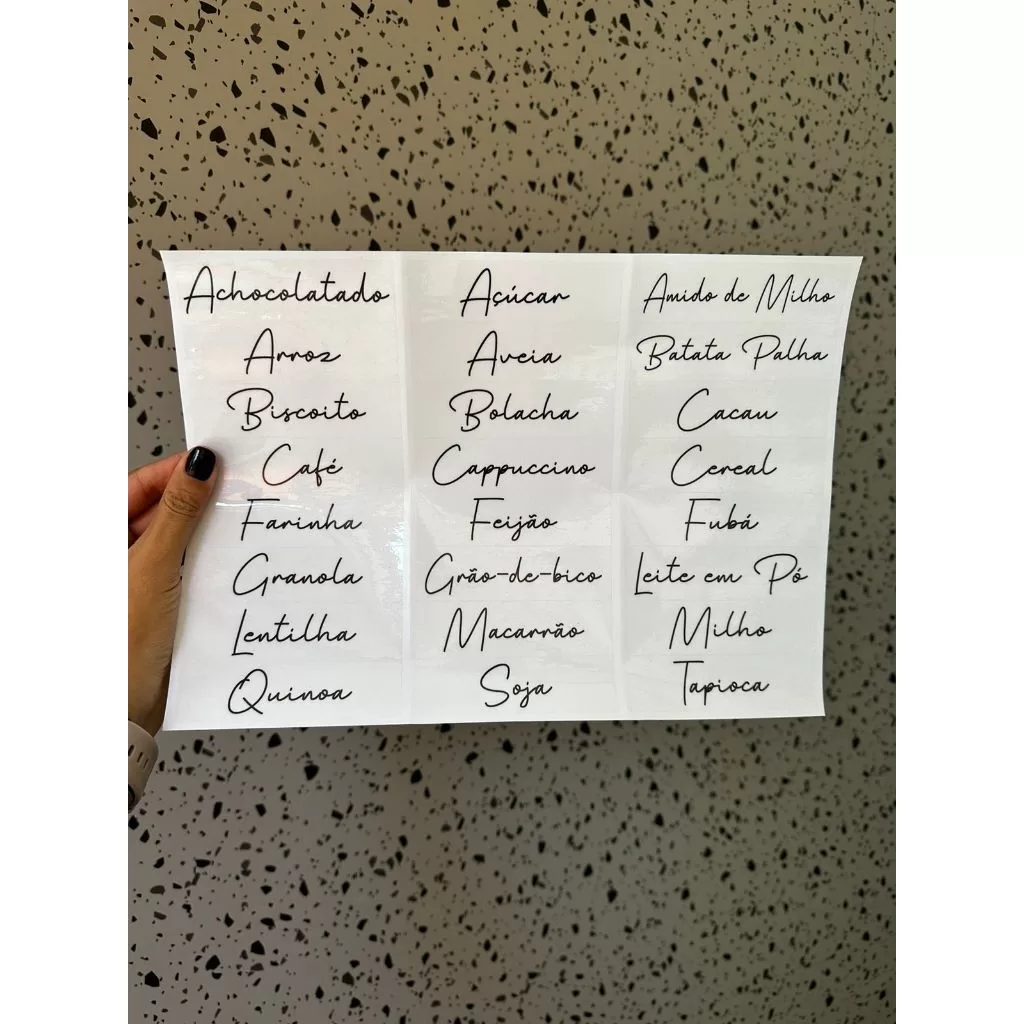 Achocolatado Açúcar Amido de Milho
Arroz Aveia Batata Palha
Biscoito Bolacha Cacau
Café Cappuccino Cereal
Farinha Feijão Fubá
Granola Grão-de-bico Leite em Pó
Lentilha Macarrão Milho
Quinoa Soja Tapioca